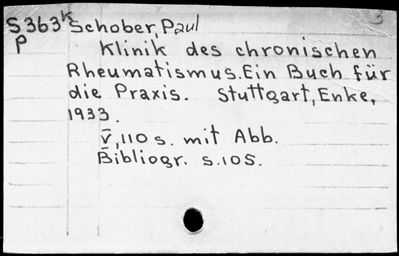 S363k Schober, Paul 3
P Klinik des chronischen
Rheumatismus. Ein Buch für
die Praxis. Stuttgart, Enke,
1933.
V, 110 s. mit Abb.
Bibliogr. s. 105.